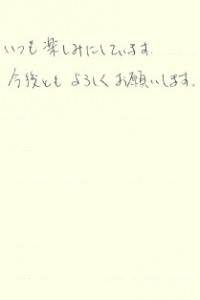 いつも楽しみにしています.
今後ともよろしくお願いします。